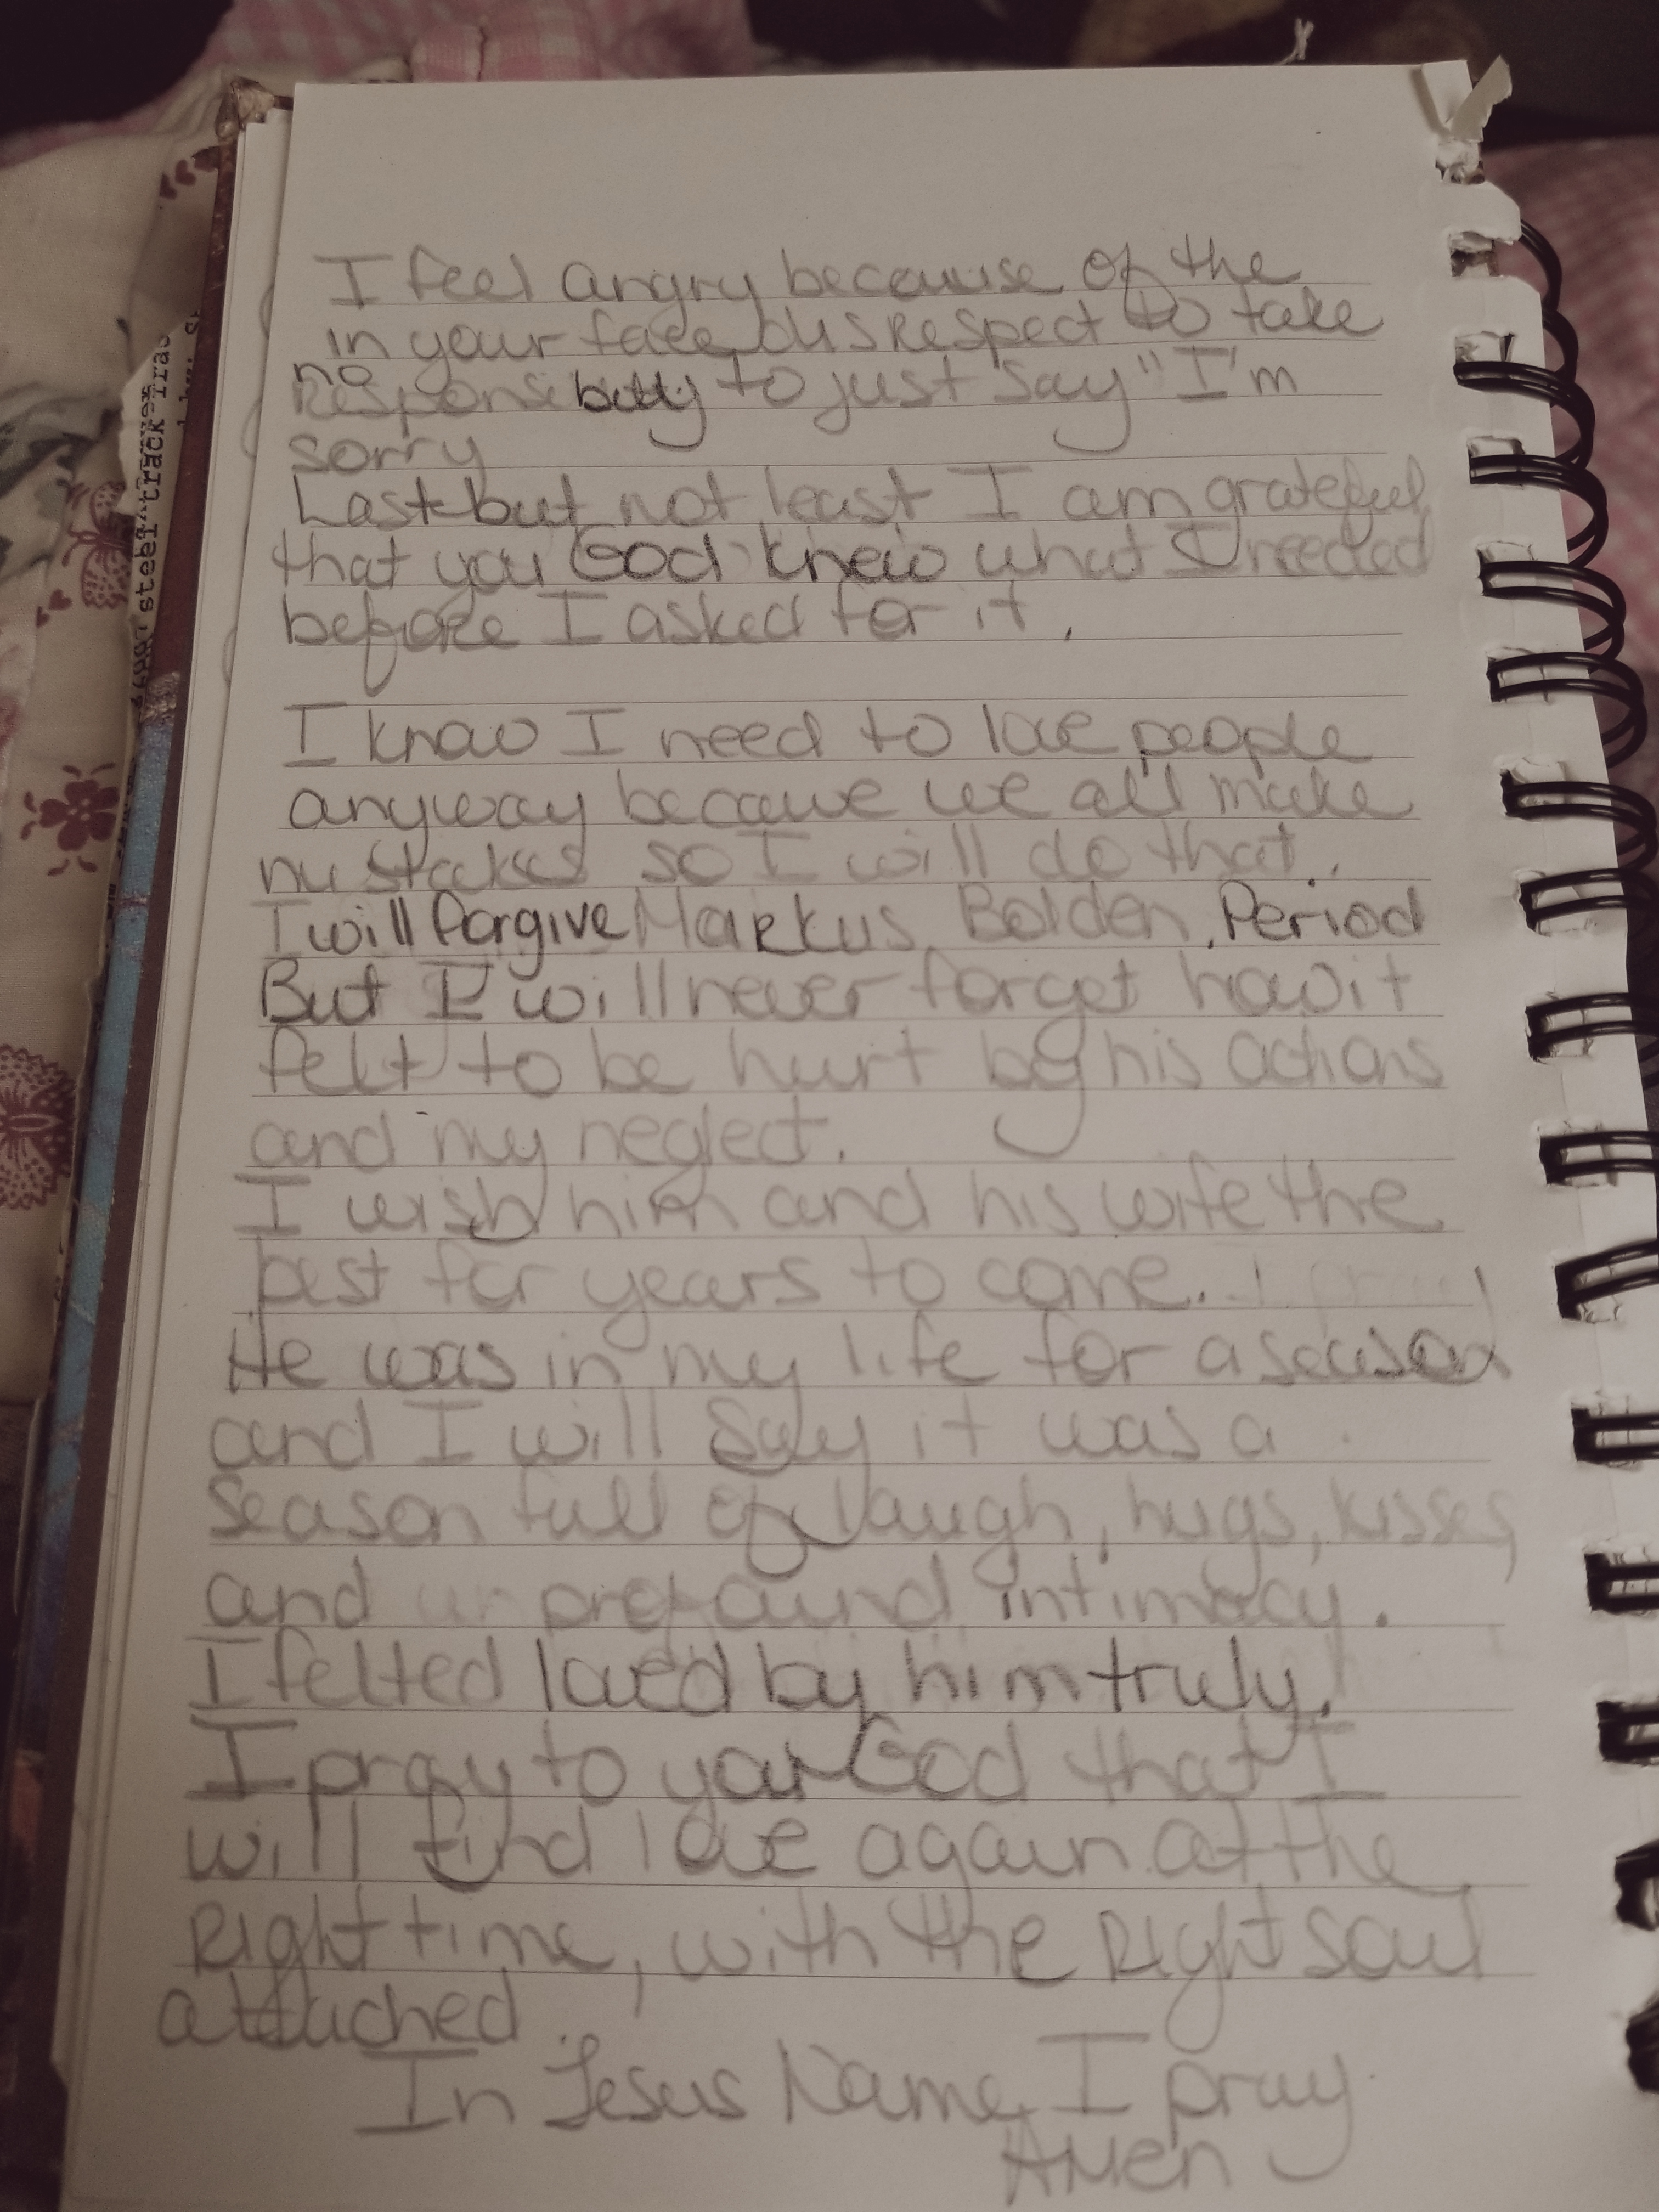 I feel angry because of the
in your face disrespect to take
no
Responsibilty to just say "I'm
sorry
Last but not least I am grateful
that you God knew what I needed
before I asked for it.
I know I need to love people
anyway because we all make
mistakes so I will do that.
I will forgive Markus Bolden, Period
But I will never forget how it
felt to be hurt by his actions
and my neglect.
I wish him and his wife the
best for years to come.
He was in my life for a season
and I will say it was a
season full of laugh, hugs, kisses,
and profound intimacy.
I felted loved by him truly.
I pray to you God that I
will find love again at the
Right time, with the Right soul
attached.
In Jesus Name I pray
AMen
steel track